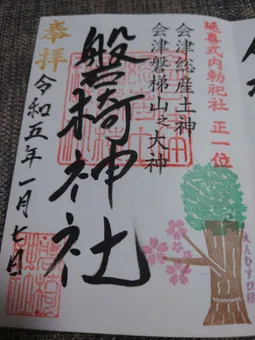 延喜式内勅祀社 正一位
会津総産土神
会津磐梯山之大神
磐椅神社
奉拝
令和五年一月七日
えんむすび桜